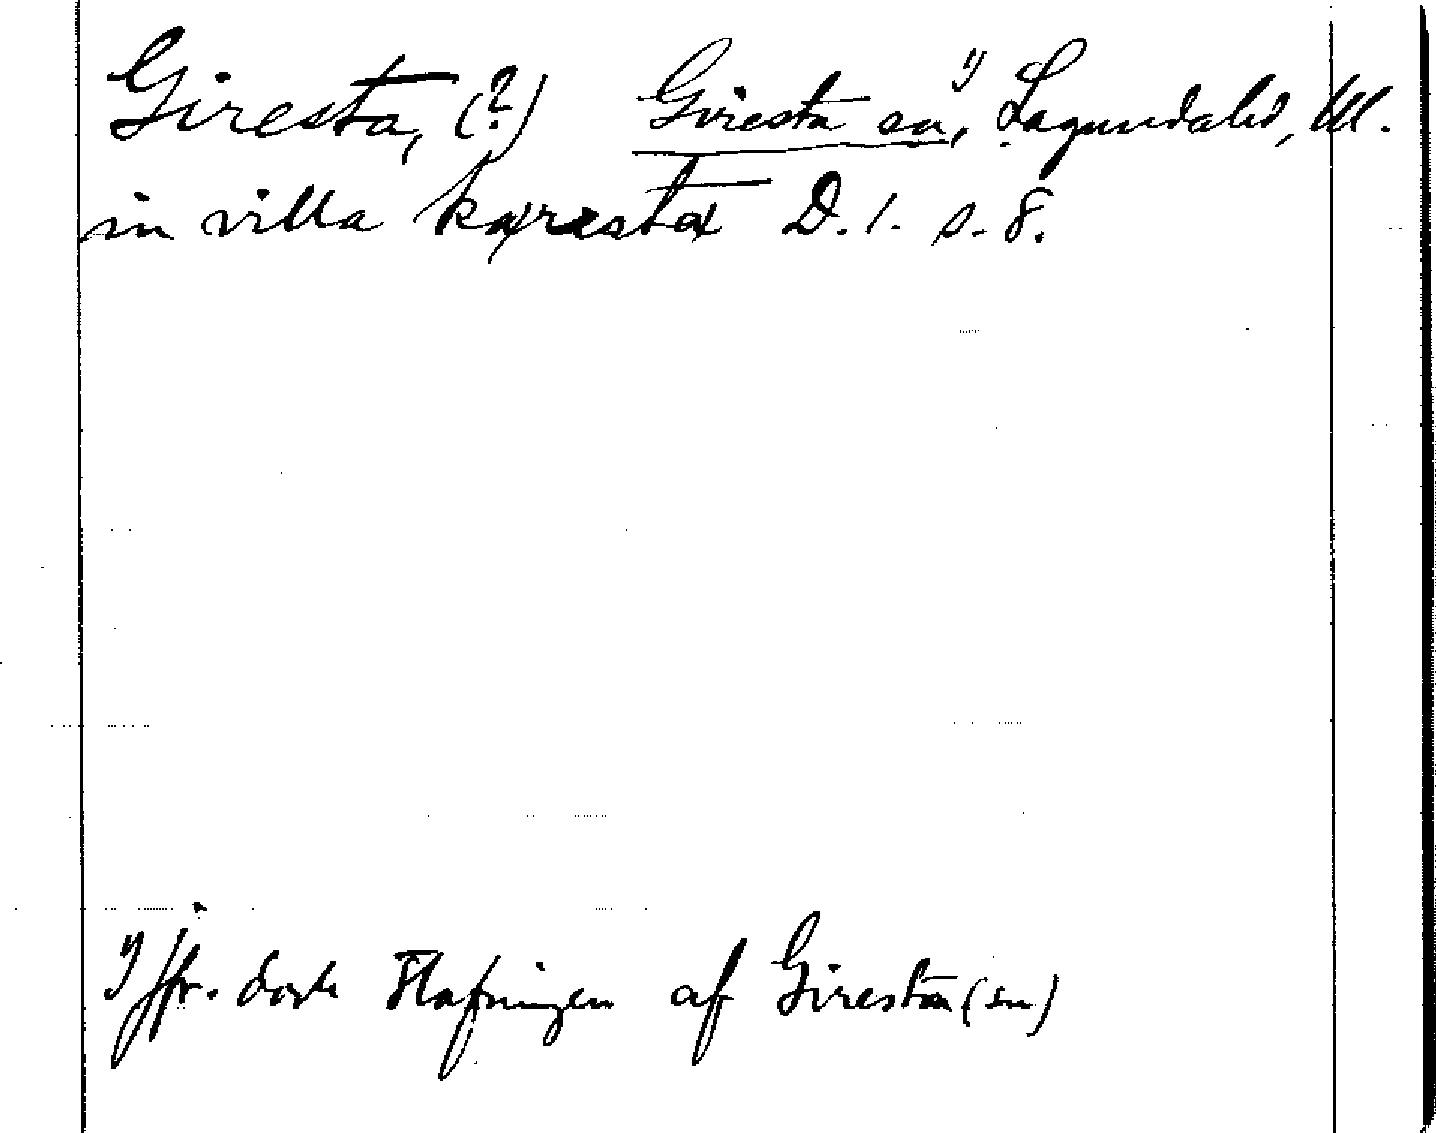 Giresta, (?) Giresta sn, ¹⁾ Lagundahd, Ul.
in villa kæræstæ D. 1. s. 8.
¹⁾ Jfr. dock stafningen af Giresta (sn)